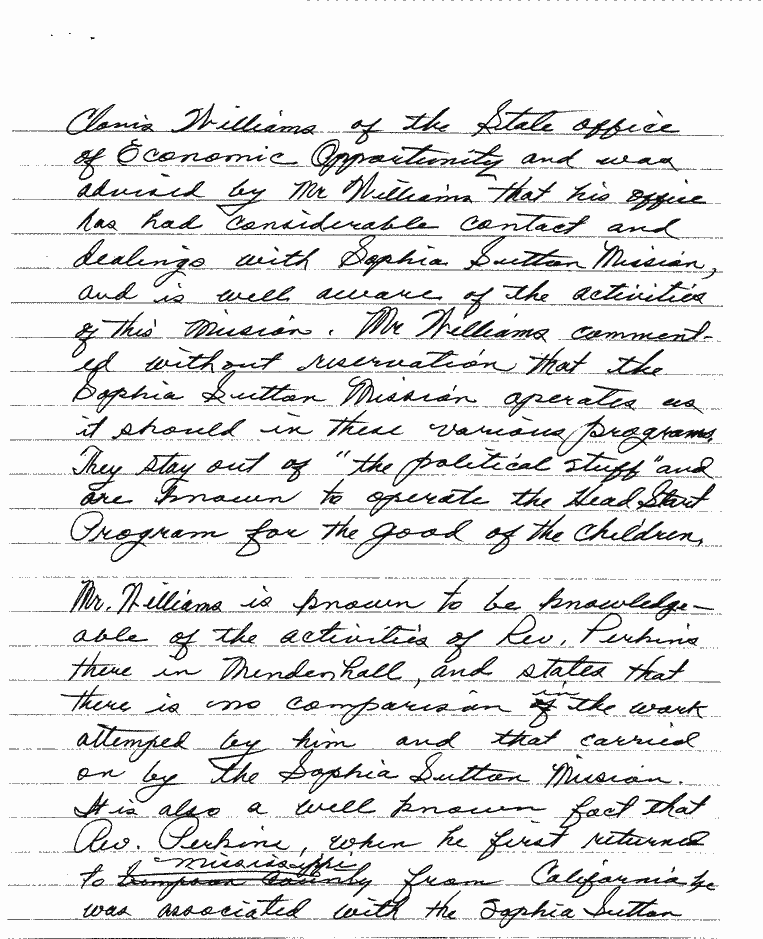 Clovis Williams of the State office
of Economic Opportunity and was
advised by Mr Williams that his office
has had considerable contact and
dealings with Sophia Sutton Mission,
and is well aware of the activities
of this Mission. Mr Williams comment-
ed without reservation that the
Sophia Sutton Mission operates as
it should in these various programs.
They stay out of "the political stuff" and
are known to operate the Head Start
Program for the good of the children.
Mr. Williams is known to be knowledge-
able of the activities of Rev. Perkins
there in Mendenhall, and states that
there is no comparison of in the work
attemped by him and that carried
on by the Sophia Sutton Mission.
It is also a well known fact that
Rev. Perkins, when he first returned
Mississippi
to Simpson County from California he
was associated with the Sophia Sutton